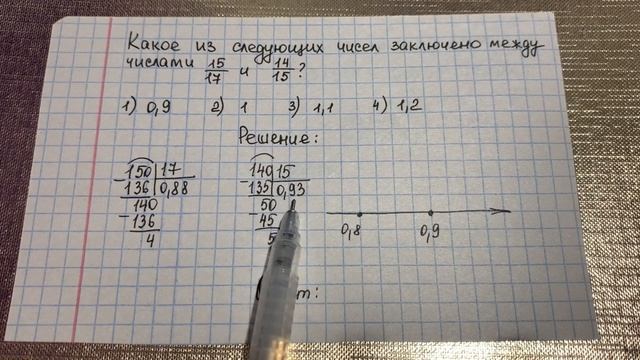 Какое из следующих чисел заключено между
числами 15/17 и 14/15?
1) 0,9 2) 1 3) 1,1 4) 1,2
Решение:
150 | 17
136 | 0,88
140
136
4
140 | 15
135 | 0,93
50
45
5
0,8 0,9